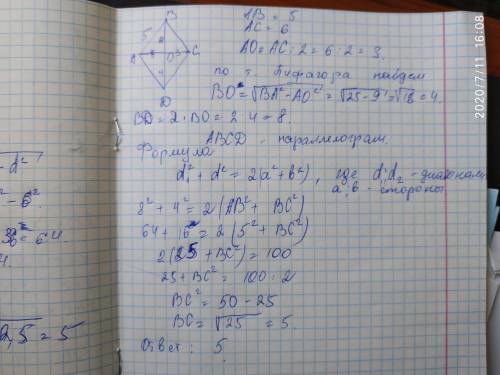 AB = 5
AC = 6
AO = AC : 2 = 6 : 2 = 3.
по т. Пифагора найдем
BO = √BA² - AO² = √25 - 9 = √16 = 4.
BD = 2 · BO = 2 · 4 = 8
ABCD - параллелограм.
Формула
d₁² + d² = 2(a² + b²), где d₁d₂ - диагонали
a, b - стороны
8² + 4² = 2(AB² + BC²)
64 + 16 = 2(5² + BC²)
2(25 + BC²) = 100
25 + BC² = 100 : 2
BC² = 50 - 25
BC = √25 = 5.
Ответ: 5.
B
5
A
O
3
C
4
D
- d²
- 6².
= 64.
2,5 = 5
2020/7/11 16:08